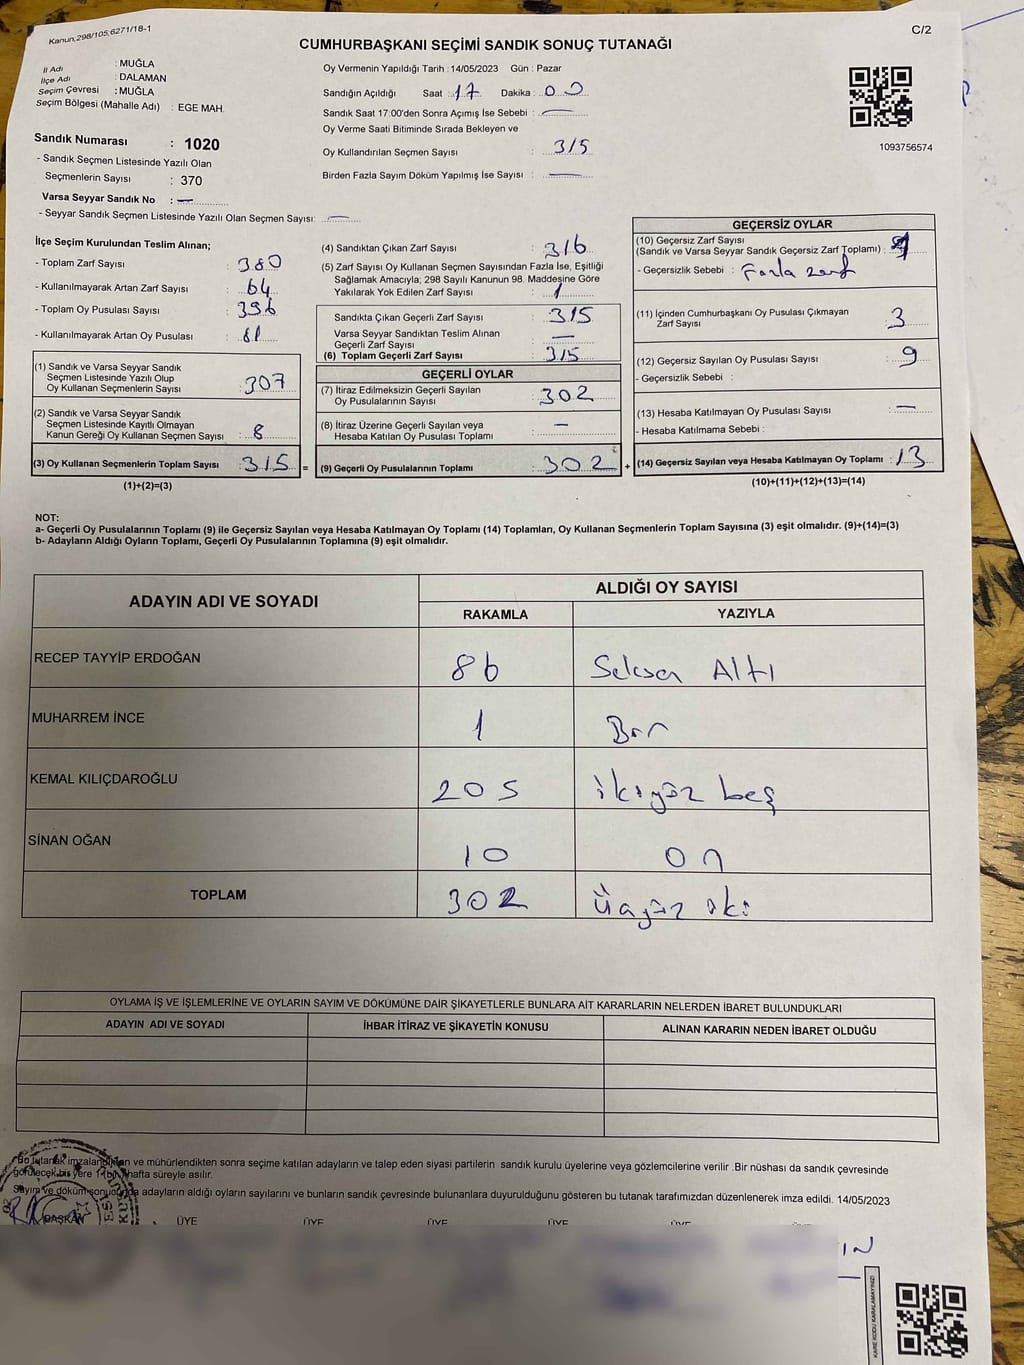 Kanun,298/105,6271/18-1
C/2
CUMHURBAŞKANI SEÇİMİ SANDIK SONUÇ TUTANAĞI
İl Adı : MUĞLA
İlçe Adı : DALAMAN
Seçim Çevresi : MUĞLA
Seçim Bölgesi (Mahalle Adı) : EGE MAH.
Sandık Numarası : 1020
- Sandık Seçmen Listesinde Yazılı Olan
Seçmenlerin Sayısı : 370
Varsa Seyyar Sandık No : —
- Seyyar Sandık Seçmen Listesinde Yazılı Olan Seçmen Sayısı: —
Oy Vermenin Yapıldığı Tarih : 14/05/2023 Gün : Pazar
Sandığın Açıldığı Saat : 17 Dakika : 00
Sandık Saat 17:00'den Sonra Açımış İse Sebebi : —
Oy Verme Saati Bitiminde Sırada Bekleyen ve
Oy Kullandırılan Seçmen Sayısı : 315
Birden Fazla Sayım Döküm Yapılmış İse Sayısı : —
1093756574
İlçe Seçim Kurulundan Teslim Alınan;
- Toplam Zarf Sayısı : 380
- Kullanılmayarak Artan Zarf Sayısı : 64
- Toplam Oy Pusulası Sayısı : 396
- Kullanılmayarak Artan Oy Pusulası : 81
(1) Sandık ve Varsa Seyyar Sandık
Seçmen Listesinde Yazılı Olup
Oy Kullanan Seçmenlerin Sayısı : 307
(2) Sandık ve Varsa Seyyar Sandık
Seçmen Listesinde Kayıtlı Olmayan
Kanun Gereği Oy Kullanan Seçmen Sayısı : 8
(3) Oy Kullanan Seçmenlerin Toplam Sayısı : 315 =
(1)+(2)=(3)
(4) Sandıktan Çıkan Zarf Sayısı : 316
(5) Zarf Sayısı Oy Kullanan Seçmen Sayısından Fazla İse, Eşitliği
Sağlamak Amacıyla; 298 Sayılı Kanunun 98. Maddesine Göre
Yakılarak Yok Edilen Zarf Sayısı : 1
Sandıkta Çıkan Geçerli Zarf Sayısı : 315
Varsa Seyyar Sandıktan Teslim Alınan
Geçerli Zarf Sayısı : —
(6) Toplam Geçerli Zarf Sayısı : 315
GEÇERLİ OYLAR
(7) İtiraz Edilmeksizin Geçerli Sayılan
Oy Pusulalarının Sayısı : 302
(8) İtiraz Üzerine Geçerli Sayılan veya
Hesaba Katılan Oy Pusulası Toplamı : —
(9) Geçerli Oy Pusulalarının Toplamı : 302 +
GEÇERSİZ OYLAR
(10) Geçersiz Zarf Sayısı
(Sandık ve Varsa Seyyar Sandık Geçersiz Zarf Toplamı) :
- Geçersizlik Sebebi : Fazla zarf
(11) İçinden Cumhurbaşkanı Oy Pusulası Çıkmayan
Zarf Sayısı : 3
(12) Geçersiz Sayılan Oy Pusulası Sayısı : 9
- Geçersizlik Sebebi :
(13) Hesaba Katılmayan Oy Pusulası Sayısı : —
- Hesaba Katılmama Sebebi :
(14) Geçersiz Sayılan veya Hesaba Katılmayan Oy Toplamı : 13
(10)+(11)+(12)+(13)=(14)
NOT:
a- Geçerli Oy Pusulalarının Toplamı (9) ile Geçersiz Sayılan veya Hesaba Katılmayan Oy Toplamı (14) Toplamları, Oy Kullanan Seçmenlerin Toplam Sayısına (3) eşit olmalıdır. (9)+(14)=(3)
b- Adayların Aldığı Oyların Toplamı, Geçerli Oy Pusulalarının Toplamına (9) eşit olmalıdır.
ADAYIN ADI VE SOYADI ALDIĞI OY SAYISI
RAKAMLA YAZIYLA
RECEP TAYYİP ERDOĞAN 86 Seksen Altı
MUHARREM İNCE 1 Bir
KEMAL KILIÇDAROĞLU 205 ikiyüz beş
SİNAN OĞAN 10 on
TOPLAM 302 Üçyüz iki
OYLAMA İŞ VE İŞLEMLERİNE VE OYLARIN SAYIM VE DÖKÜMÜNE DAİR ŞİKAYETLERLE BUNLARA AİT KARARLARIN NELERDEN İBARET BULUNDUKLARI
ADAYIN ADI VE SOYADI İHBAR İTİRAZ VE ŞİKAYETİN KONUSU ALINAN KARARIN NEDEN İBARET OLDUĞU
Bu tutanak imzalandıktan ve mühürlendikten sonra seçime katılan adayların ve talep eden siyasi partilerin sandık kurulu üyelerine veya gözlemcilerine verilir .Bir nüshası da sandık çevresinde
görülecek bir yere 1 bir hafta süreyle asılır.
Sayım ve döküm sonucunda adayların aldığı oyların sayılarını ve bunların sandık çevresinde bulunanlara duyurulduğunu gösteren bu tutanak tarafımızdan düzenlenerek imza edildi. 14/05/2023
BAŞKAN ÜYE ÜYE ÜYE ÜYE ÜYE
KARE KODU KARALAMAYINIZ!